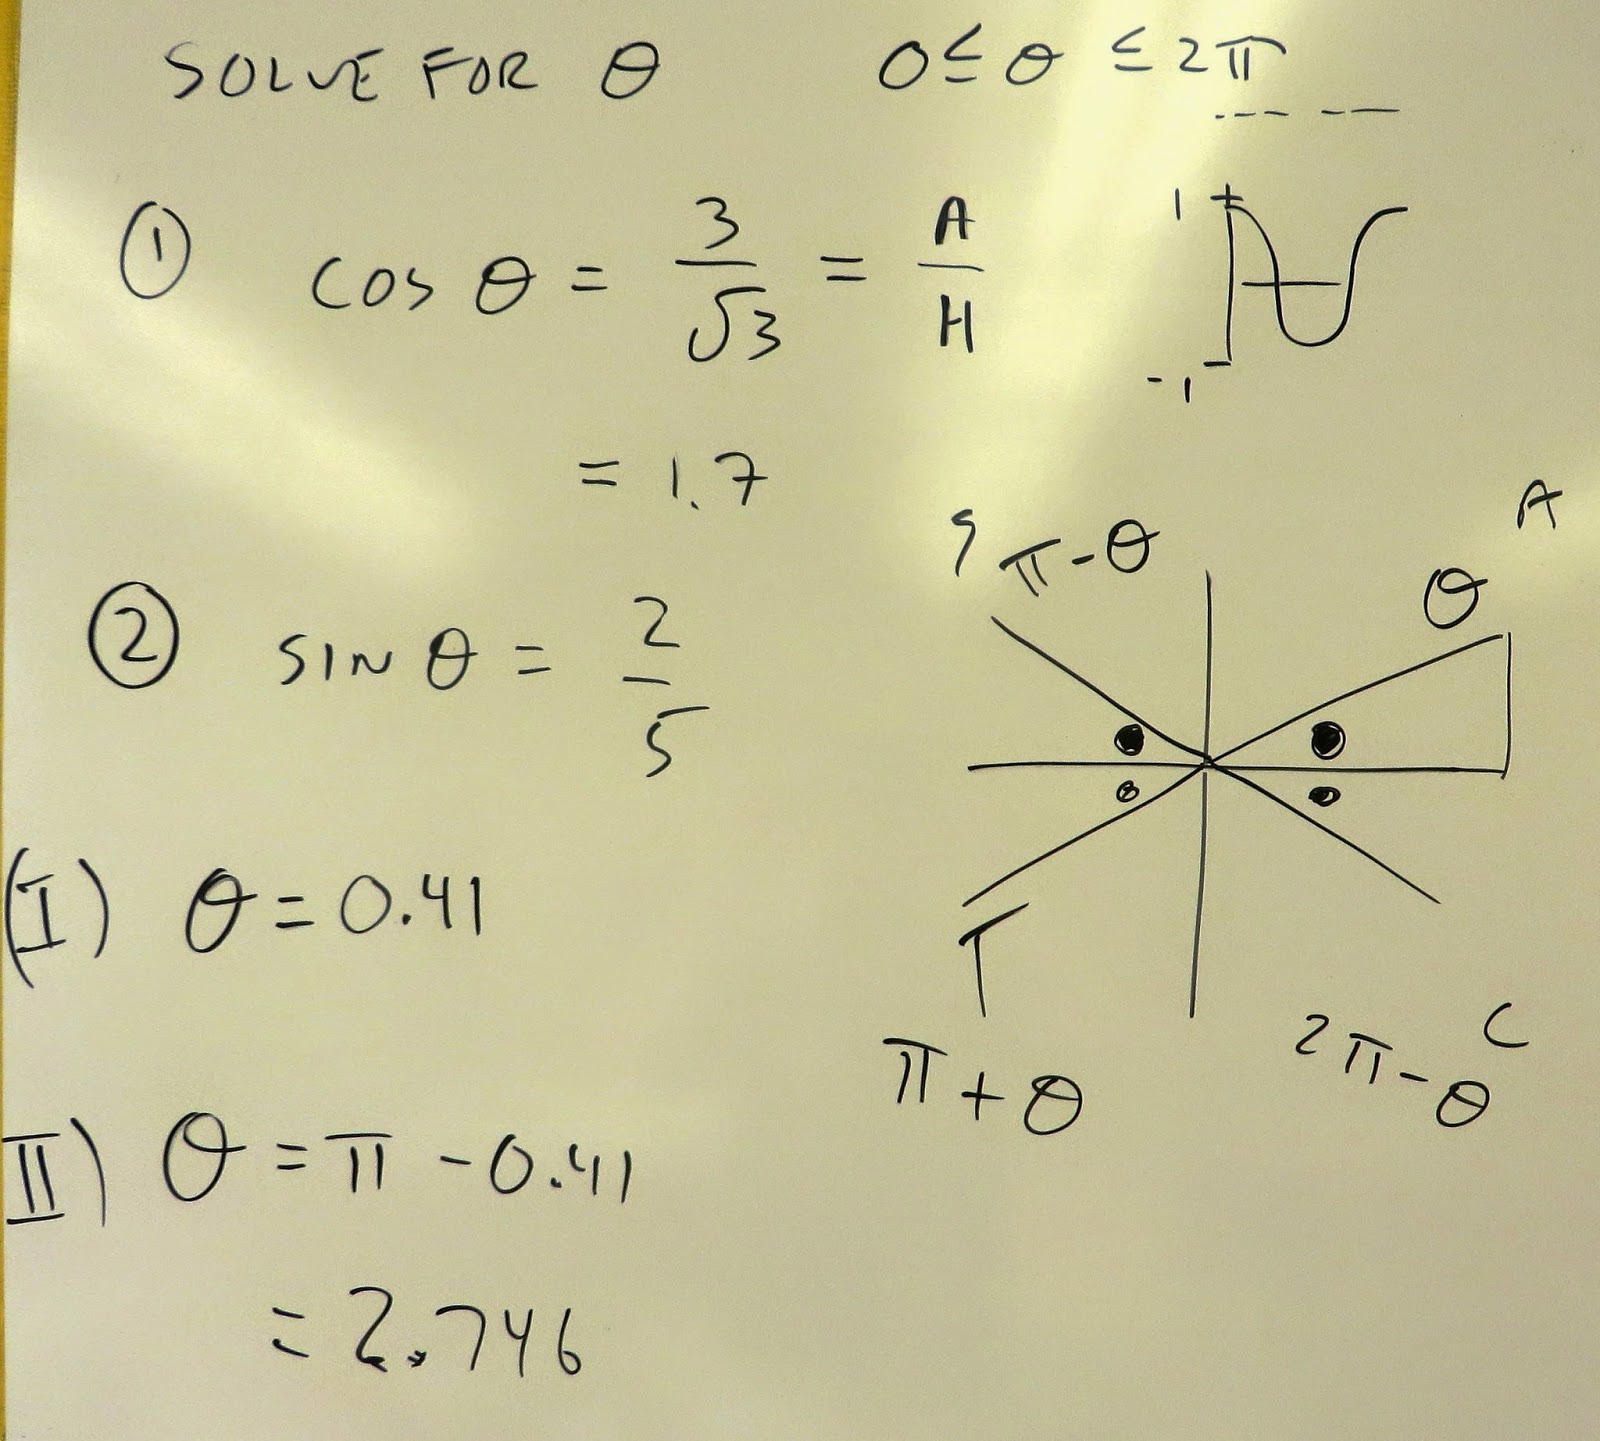 SOLVE FOR θ 0 ≤ θ ≤ 2π
① cos θ = 3/√3 = A/H
1
-1
= 1.7
S π-θ
A
θ
② SIN θ = 2/5
(I) θ = 0.41
T
π + θ
C
2π - θ
II) θ = π - 0.41
= 2.746